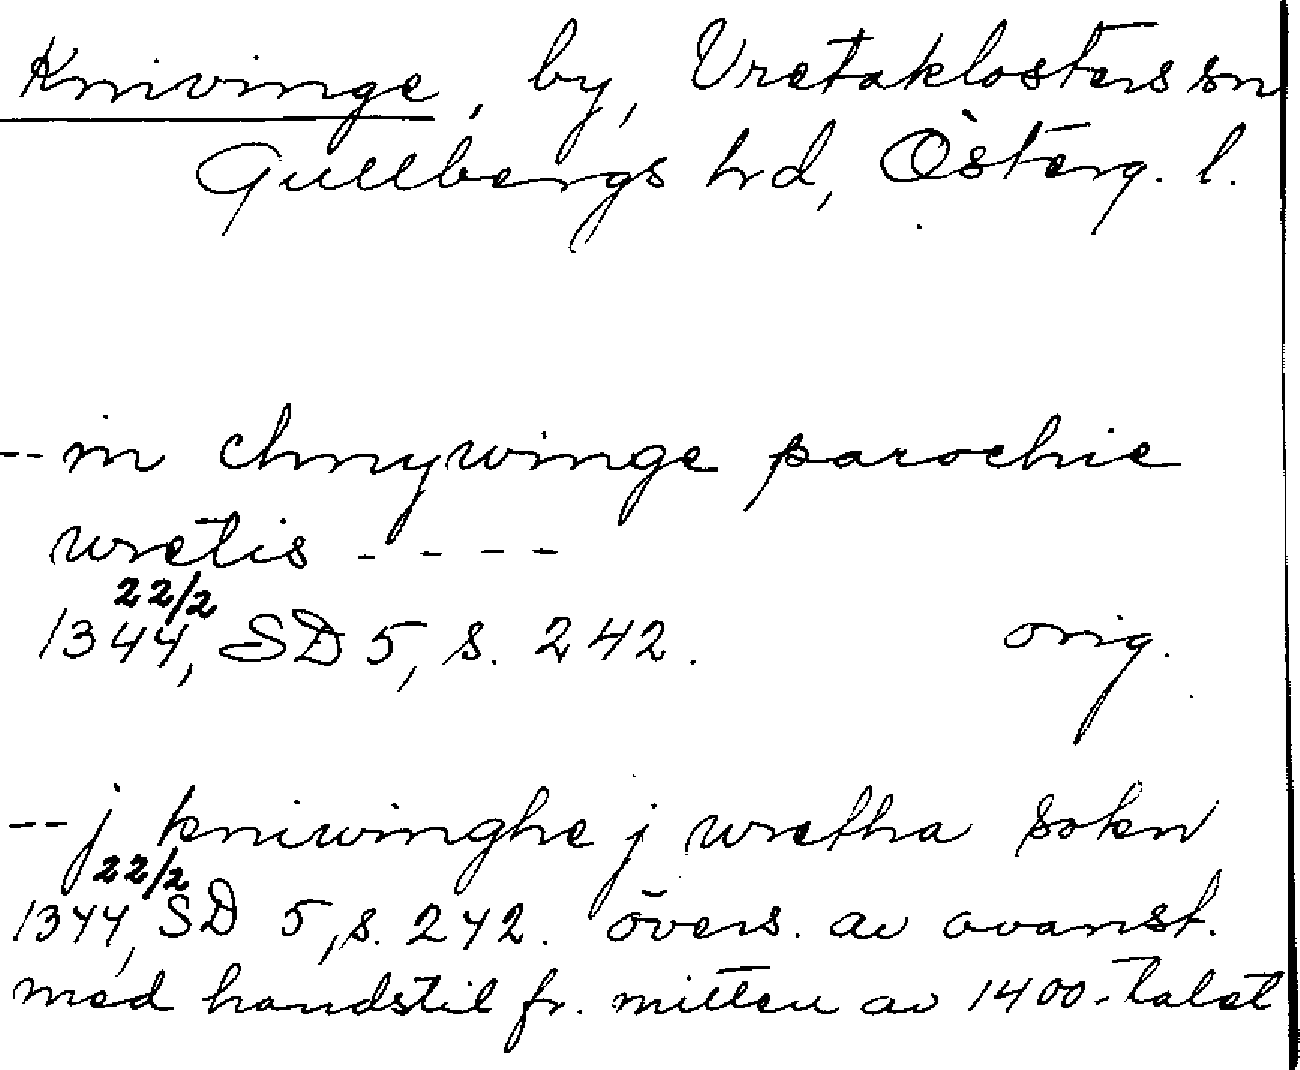 Knivinge, by, Vretaklosters sn
Gullbergs hrd, Österg. l.
-- in chnywinge parochie
wretis - - - -
22/2
1344, SD 5, s. 242. orig.
-- j kniwinghe j wretha sokn
22/2
1344, SD 5, s. 242. övers. av ovanst.
med handstil fr. mitten av 1400-talet